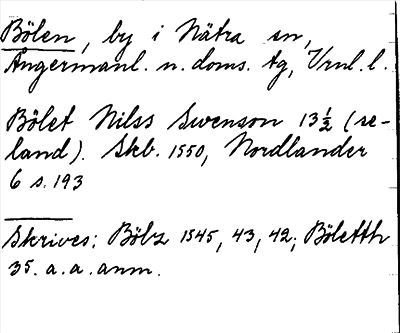 Bölen, by i Nätra sn,
Ångermanl. n. doms. tg, Vrnl. l.
Bölet Nilss Swenson 13½ (se-
land). Skb. 1550, Nordlander
6 s. 193
Skrives: Bölz 1545, 43, 42; Böletth
35. a. a. anm.